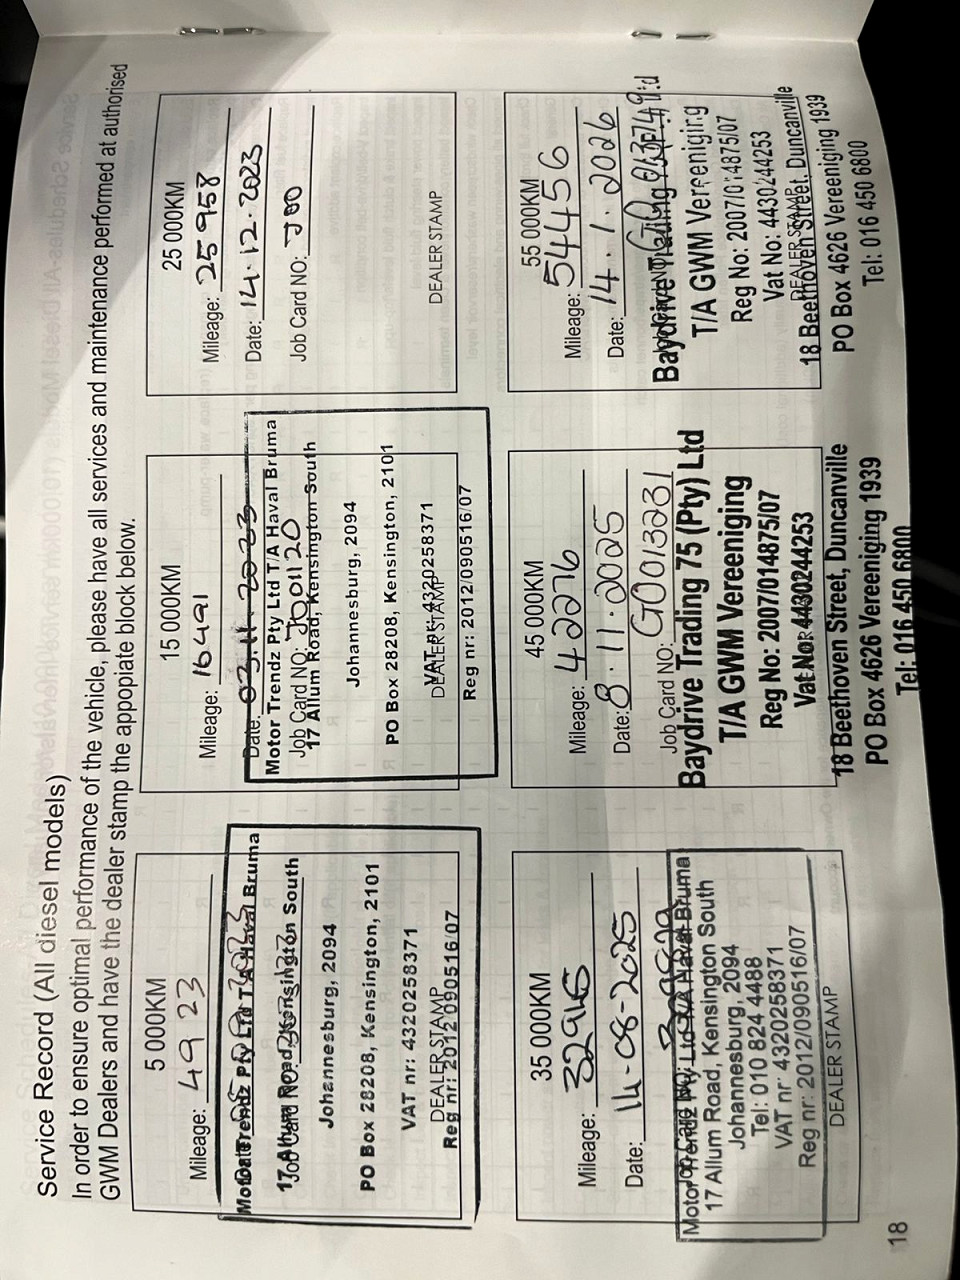 Service Record (All diesel models)
In order to ensure optimal performance of the vehicle, please have all services and maintenance performed at authorised
GWM Dealers and have the dealer stamp the appopiate block below.
5 000KM
Mileage: 4923
Motor Trendz Pty Ltd T/A Haval Bruma
Job Card NO:
17 Allum Road, Kensington South
Johannesburg, 2094
PO Box 28208, Kensington, 2101
VAT nr: 4320258371
DEALER STAMP
Reg nr: 2012/090516/07
15 000KM
Mileage: 16491
Date: 03.11.2023
Motor Trendz Pty Ltd T/A Haval Bruma
Job Card NO:
17 Allum Road, Kensington South
Johannesburg, 2094
PO Box 28208, Kensington, 2101
VAT nr: 4320258371
DEALER STAMP
Reg nr: 2012/090516/07
25 000KM
Mileage: 25958
Date: 14.12.2023
Job Card NO:
DEALER STAMP
35 000KM
Mileage: 32945
Date: 14-08-2025
Motor Trendz Pty Ltd T/A Haval Bruma
17 Allum Road, Kensington South
Johannesburg, 2094
Tel: 010 824 4488
VAT nr: 4320258371
Reg nr: 2012/090516/07
DEALER STAMP
45 000KM
Mileage: 42276
Date: 8.11.2025
Job Card NO: G0013231
Baydrive Trading 75 (Pty) Ltd
T/A GWM Vereeniging
Reg No: 2007/014875/07
Vat No: 4430244253
18 Beethoven Street, Duncanville
PO Box 4626 Vereeniging 1939
Tel: 016 450 6800
55 000KM
Mileage: 54456
Date: 14.1.2026
Baydrive Trading
T/A GWM Vereeniging
Reg No: 2007/014875/07
Vat No: 4430244253
DEALER STAMP
18 Beethoven Street, Duncanville
PO Box 4626 Vereeniging 1939
Tel: 016 450 6800
18